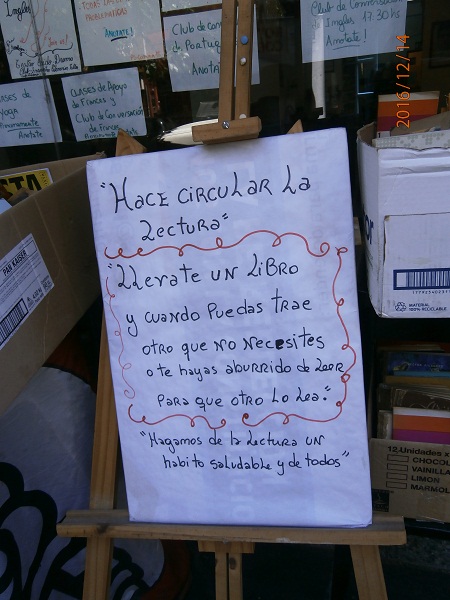 TODAS LAS
PROBLEMATICAS
ANOTATE!
Club de
de Portugu
ANOTA
Club de Conversación
Ingles 17.30 hs
Anotate!
CLASES DE
YOGA
Anotate
CLASES DE APOYO
de Frances y
Club de Conversación
de Frances
2016/12/14
PAN KAISER
"HACE CIRCULAR LA
LECTURA"
"LLEVATE UN LIBRO
y CUANDO PUEDAS TRAE
OTRO QUE NO NECESITES
O TE HAYAS ABURRIDO DE LEER
PARA QUE OTRO LO LEA."
"HAGAMOS DE LA LECTURA UN
HABITO SALUDABLE y DE TODOS"
MATERIAL
100% RECICLABLE
12 Unidades x
CHOCOL
VAINILLA
LIMON
MARMOL